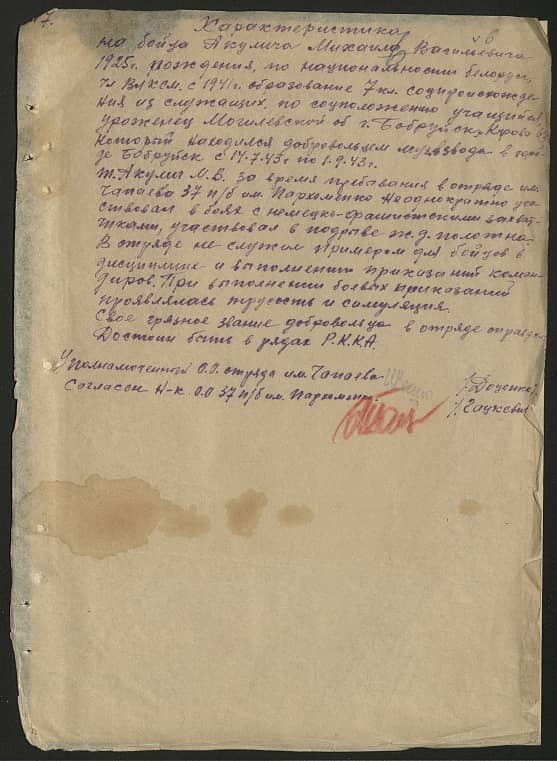 7.
Характеристика
на бойца Акулича Михаила Васильевича
1925г. рождения, по национальности белорус,
чл ВЛКСМ. с 1941г. образование 7 кл. соцпроисхожде-
ния из служащих, по соцположению учащийся
уроженец Могилевской об г. Бобруйск,
который находился добровольцем в
де Бобруйск с 14.7.43г по 1.9.43г.
т. Акулич М.В. за время пребывания в отряде им.
Чапаева 37 п/б им. Пархоменко неоднократно уча-
ствовал в боях с немецко-фашистскими захват-
чиками, участвовал в подрыве ж.д. полотна.
В отряде не служил примером для бойцов в
дисциплине и выполнении приказаний коман-
диров. При выполнении боевых приказаний
проявлялась трусость и симуляция.
Свое грязное звание добровольца в отряде оправдал
Достоин быть в рядах Р.К.К.А.
Уполнамоченный О.О. отряда им. Чапаева /Доценко/
Согласен Н-к О.О 37 п/б им. Пархоменко /Гацкевич